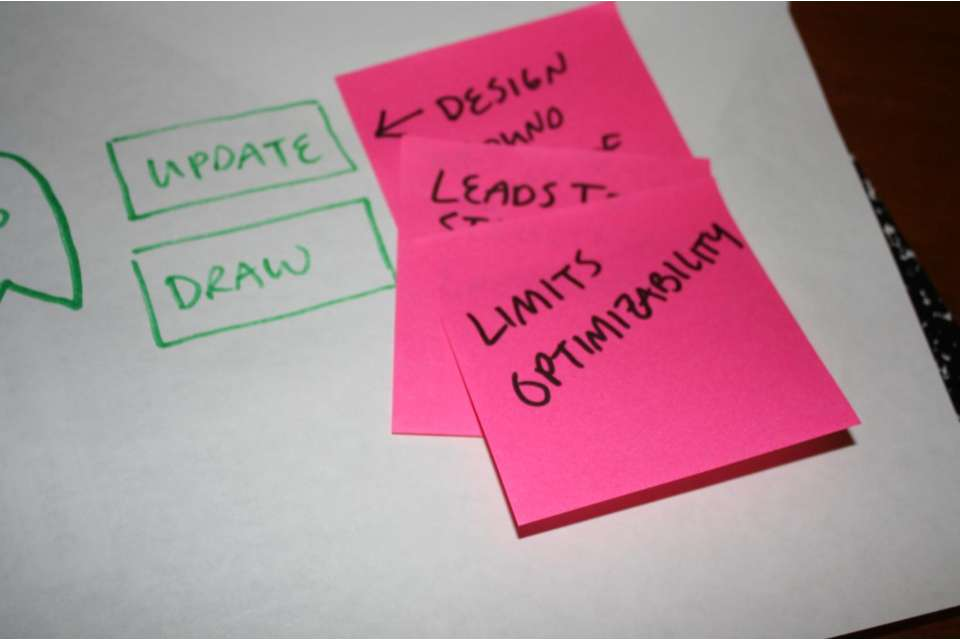 UPDATE
DRAW
← DESIGN
LEADS
LIMITS
OPTIMIZABILITY